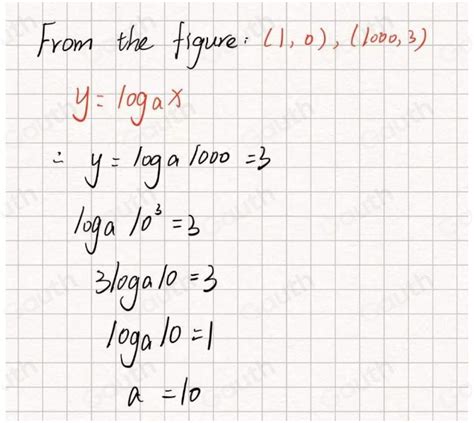 From the figure: (1, 0), (1000, 3)
y = log a x
∴ y = log a 1000 = 3
log a 10³ = 3
3 log a 10 = 3
log a 10 = 1
a = 10